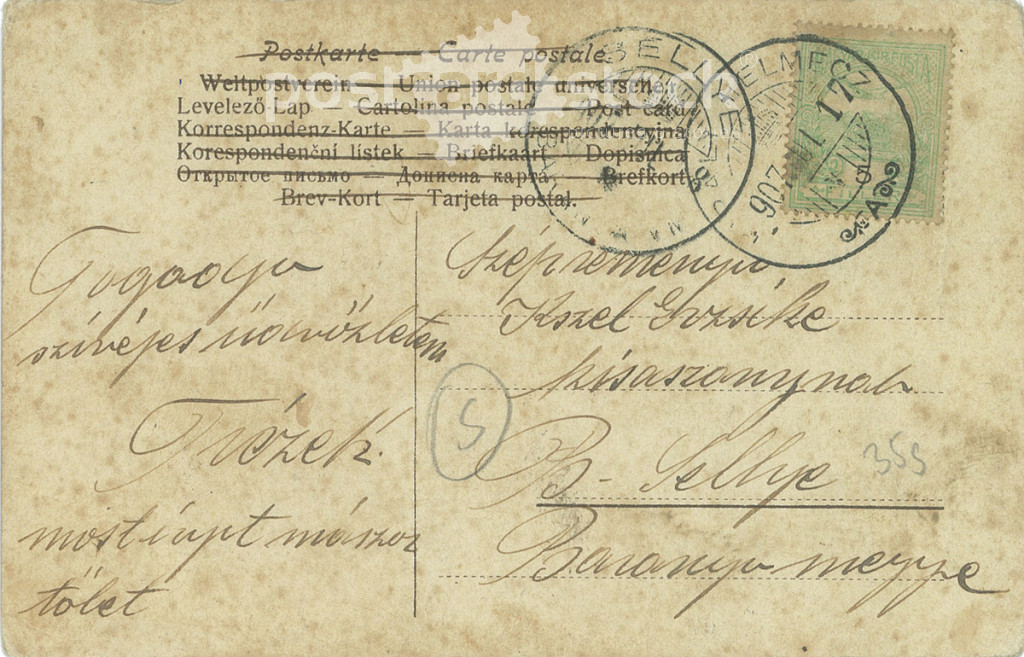 Postkarte — Carte postale
Weltpostverein — Union postale universelle
Levelező-Lap — Cartolina postale — Post card
Korrespondenz-Karte — Karta korespondencyjna
Korespondenční lístek — Briefkaart — Dopisnica
Открытое письмо — Дописна карта — Brefkort
Brev-Kort — Tarjeta postal.
SELLYE
SELMECZ
907
17
A
Fogadja
szívéjes üdvözletem
most írt
tőlet
Szépreményű
Kszel Gizsike
kisaszonynak
B-Sellye
Baranya megye
S
355